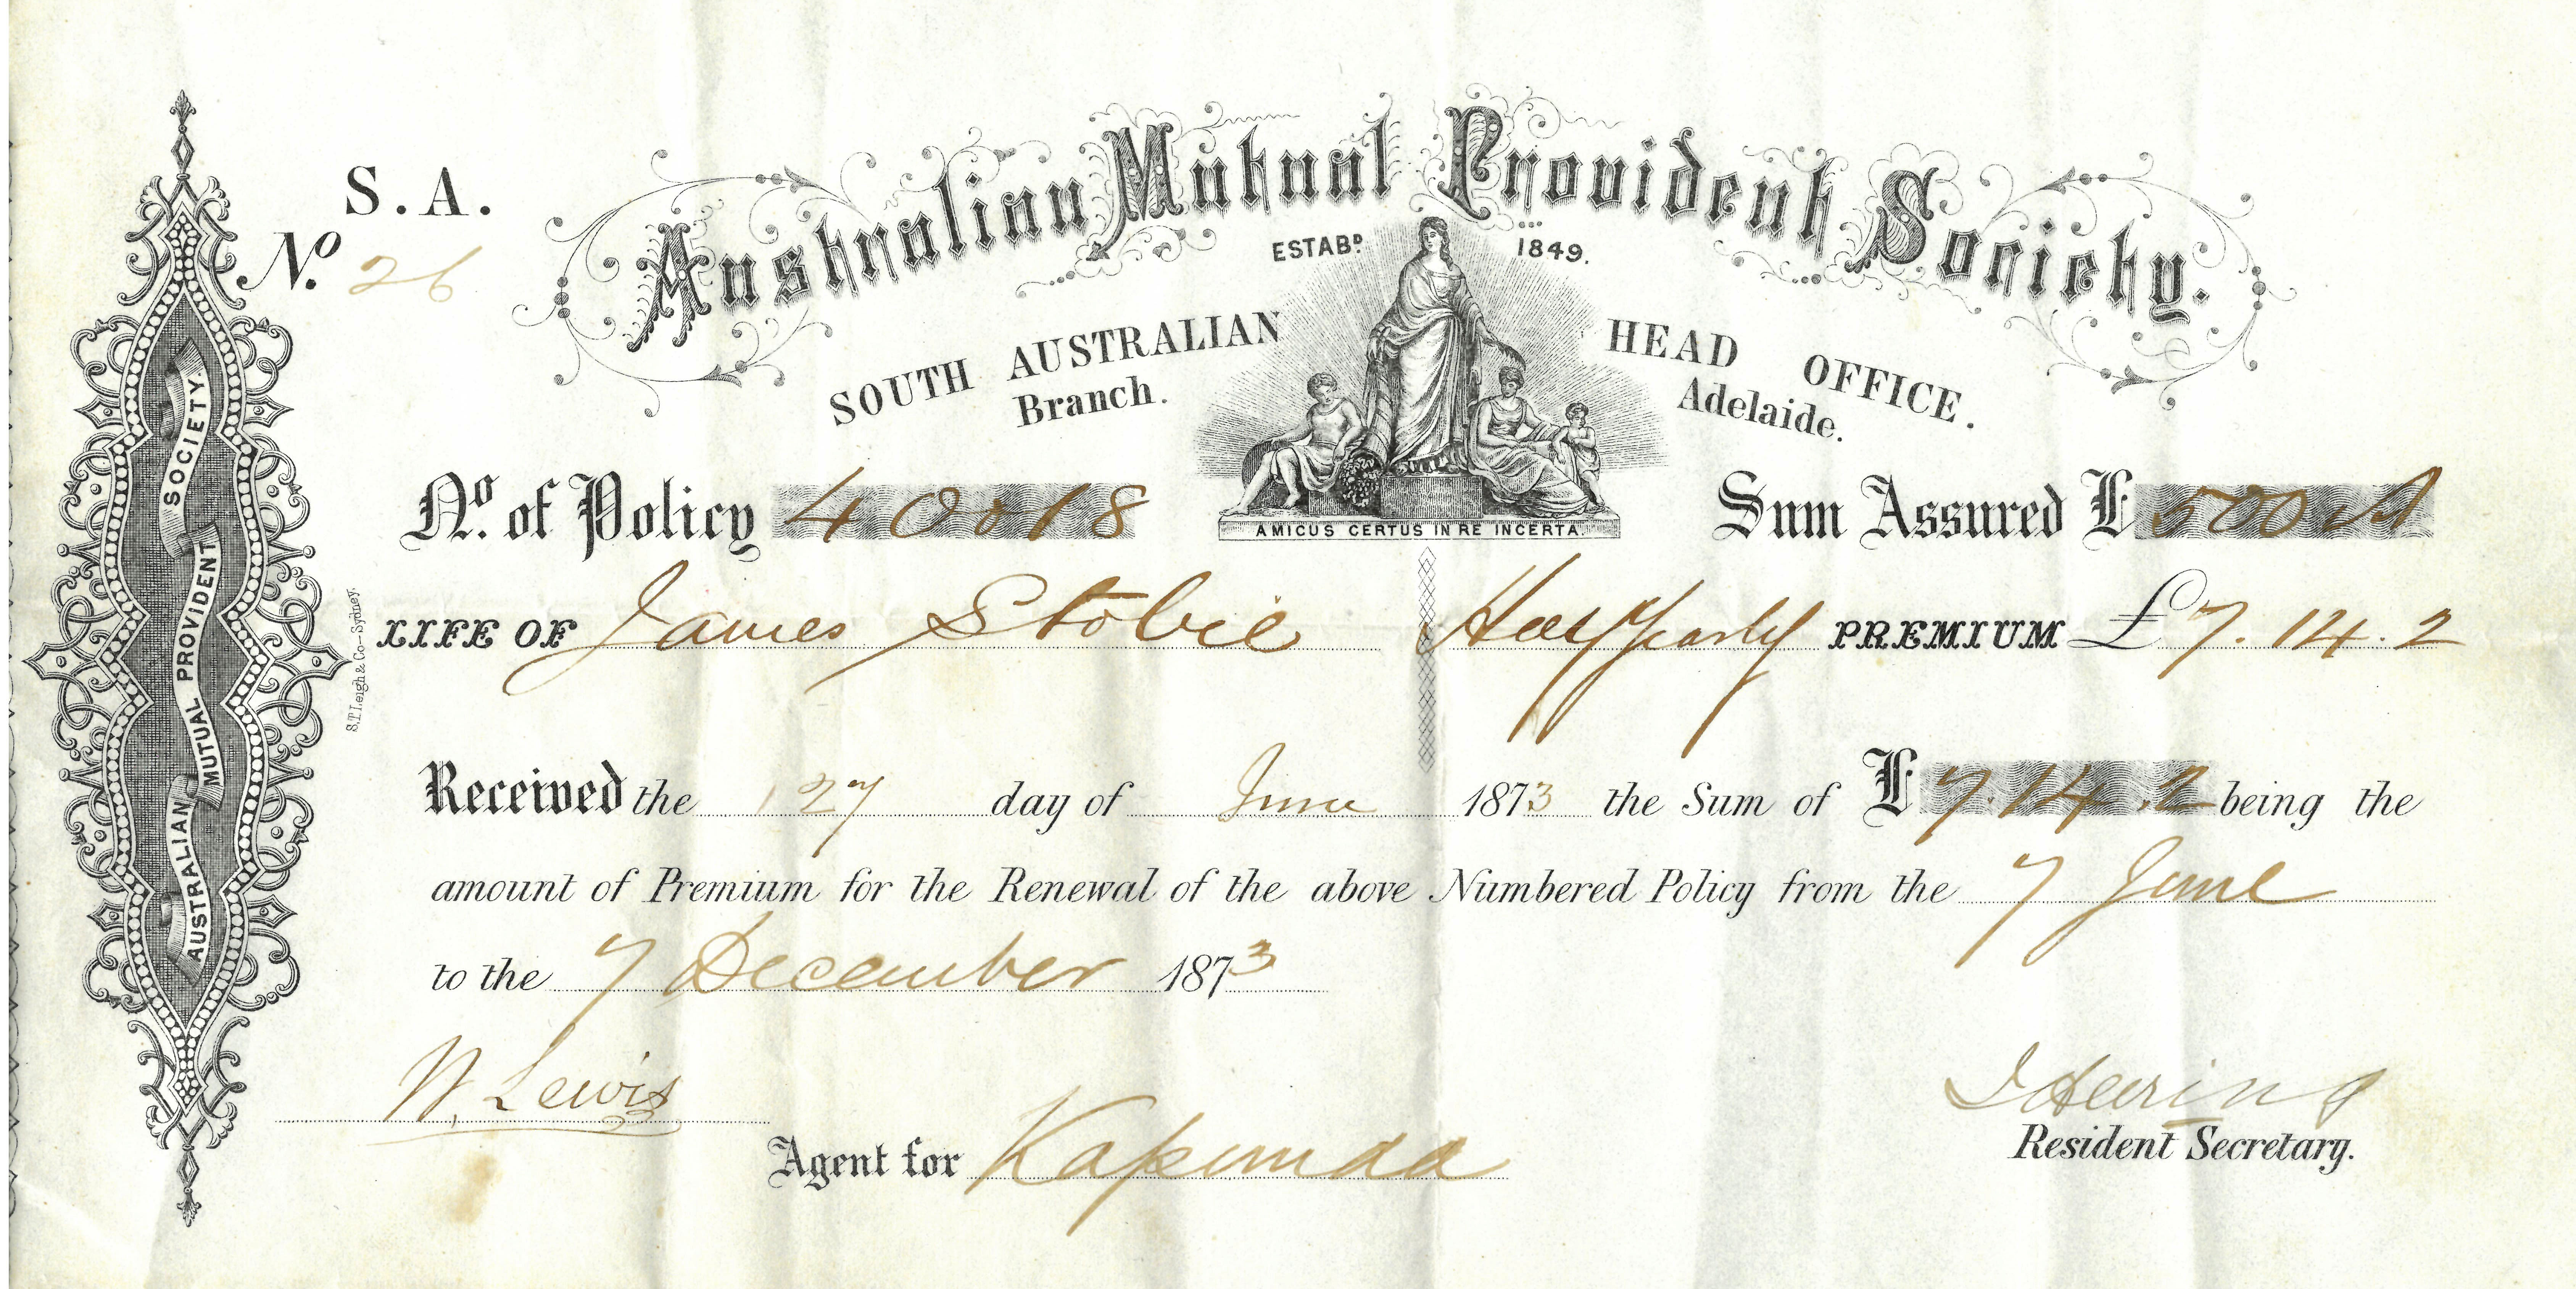 S. A.
No. 26
Australian Mutual Provident Society.
ESTABD. 1849.
SOUTH AUSTRALIAN HEAD OFFICE.
Branch. Adelaide.
AMICUS CERTUS IN RE INCERTA.
No. of Policy 40018 Sum Assured £ 500
LIFE OF James Stobie Half Yearly PREMIUM £7.14.2
Received the 27 day of June 1873 the Sum of £ 7.14.2 being the
amount of Premium for the Renewal of the above Numbered Policy from the 7 June
to the 7 December 1873
Lewis
Agent for Kapunda
Resident Secretary.
AUSTRALIAN MUTUAL PROVIDENT SOCIETY.
S.T. Leigh & Co - Sydney.